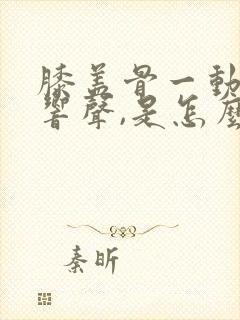 膝盖骨一動
響聲,是怎麼
秦昕